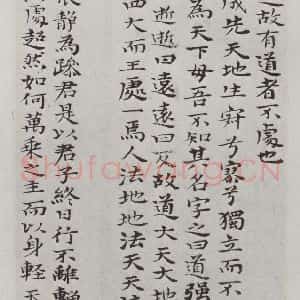 之故有道者不處也
成先天地生寂兮寥兮獨立而不
為天下母吾不知其名字之曰道强
逝逝曰遠遠曰反故道大天大地
四大而王處一焉人法地地法天天法
靜為躁君是以君子終日行不離輜
處超然如何萬乘之主而以身輕天
Shufawang.CN